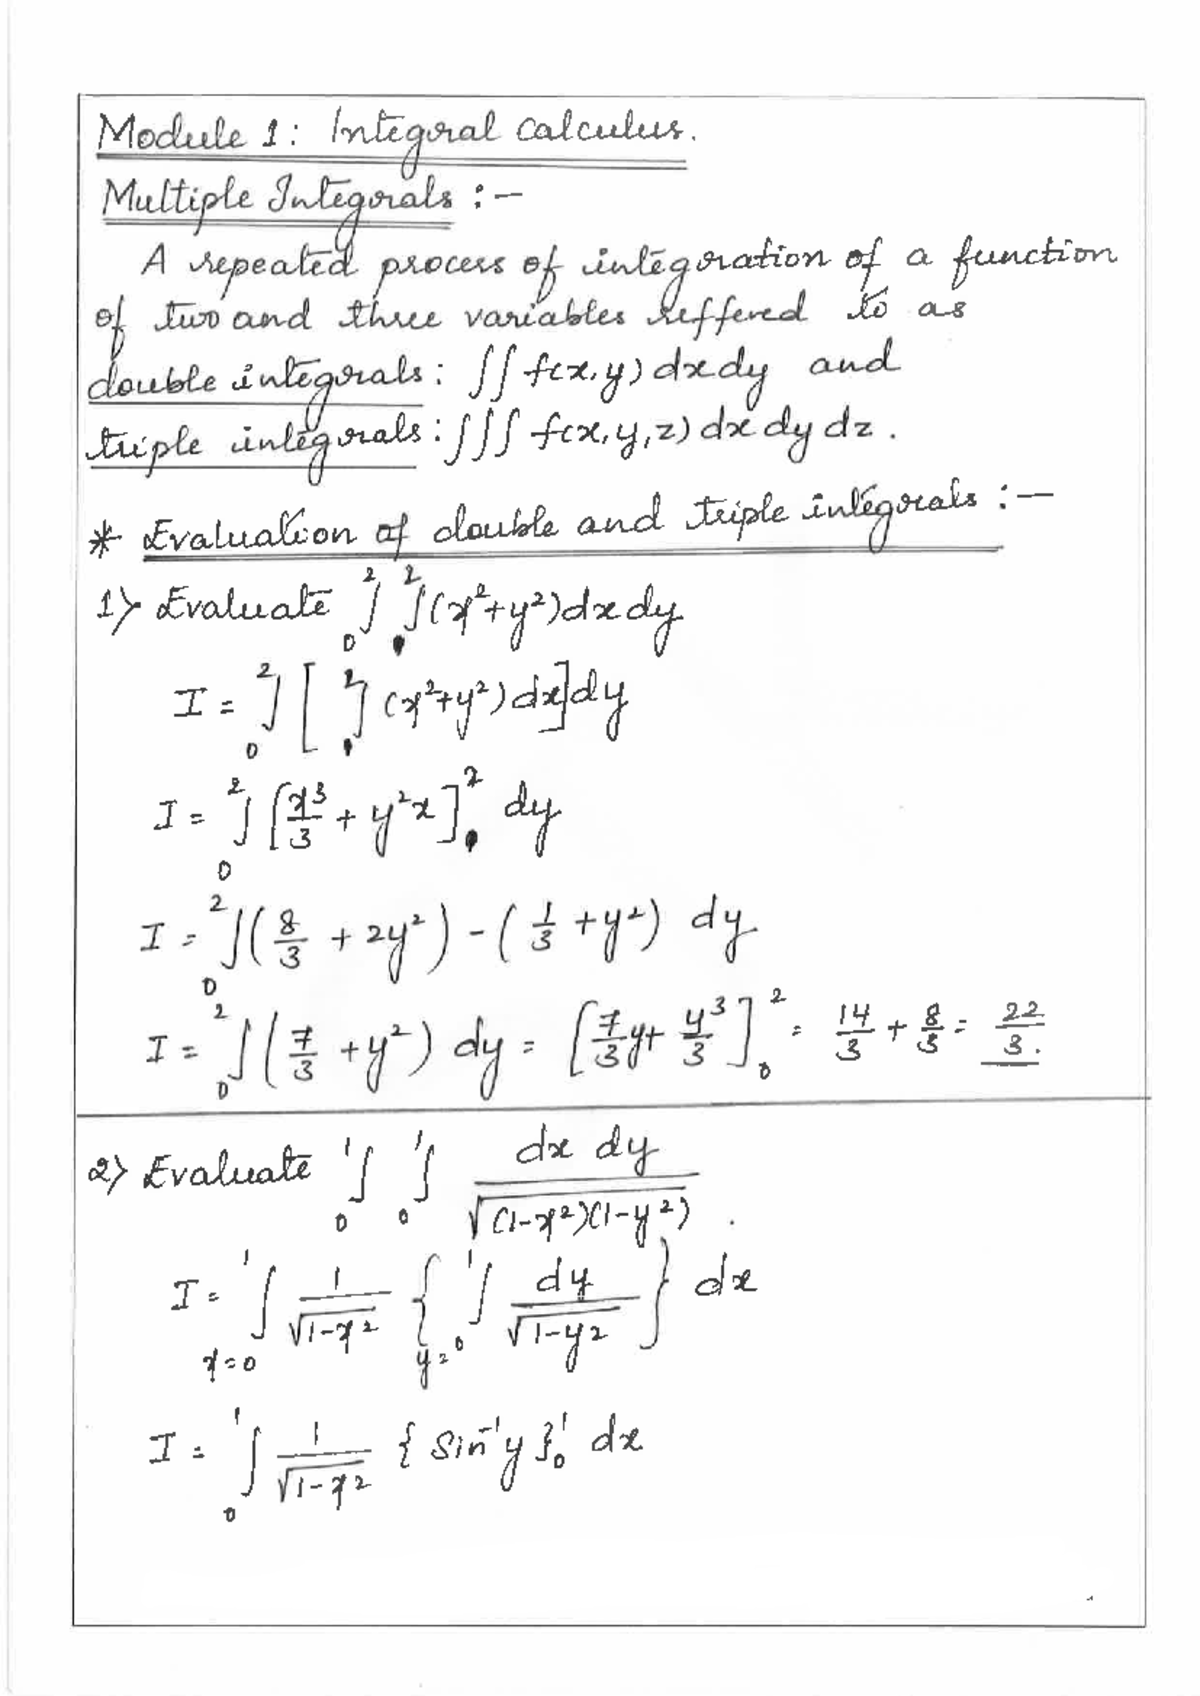 Module 1: Integral Calculus.
Multiple Integrals :-
A repeated process of integration of a function
of two and three variables reffered to as
double integrals: ∫∫ f(x,y) dx dy and
triple integrals: ∫∫∫ f(x,y,z) dx dy dz.
* Evaluation of double and triple integrals :-
1) Evaluate ₀∫² ∫² (x²+y²) dx dy
I = ₀∫² [ ∫² (x²+y²) dx] dy
I = ₀∫² [x³/3 + y²x]² dy
I = ₀∫² (8/3 + 2y²) - (1/3 + y²) dy
I = ₀∫² (7/3 + y²) dy = [7/3 y + y³/3]₀² = 14/3 + 8/3 = 22/3.
2) Evaluate ₀∫¹ ₀∫¹ dx dy / √(1-x²)(1-y²) .
I = ₓ₌₀∫¹ 1/√1-x² { y=0∫¹ dy/√1-y² } dx
I = ₀∫¹ 1/√1-x² { Sin⁻¹y }₀¹ dx